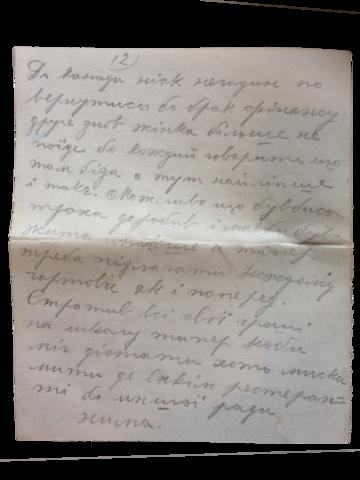 12)
До канади ніяк негодин по
вернутись бо брак фінансу
друге знов жінка більше не
поїде бо кождий говорить що
там біда а тут найліпше
і так. Можливо що був бись
троха доробив і мав би був
жити а типер
треба підлягати кождому
чортови як і поперед.
Стратив всі свої гроші
на школу типер коби
міг дістати хоть миски
мити де в якім ресторан
ті бо иншої ради
нима.